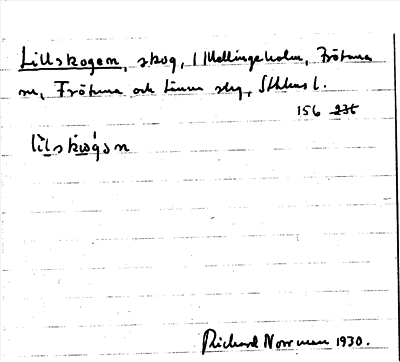 Lillskogen, skog, 1 Mellingeholm, Frötuna
sn, Frötuna och Länna skg, Sthlms l.
156 236
lìlskωǵən
Richard Norrman 1930.